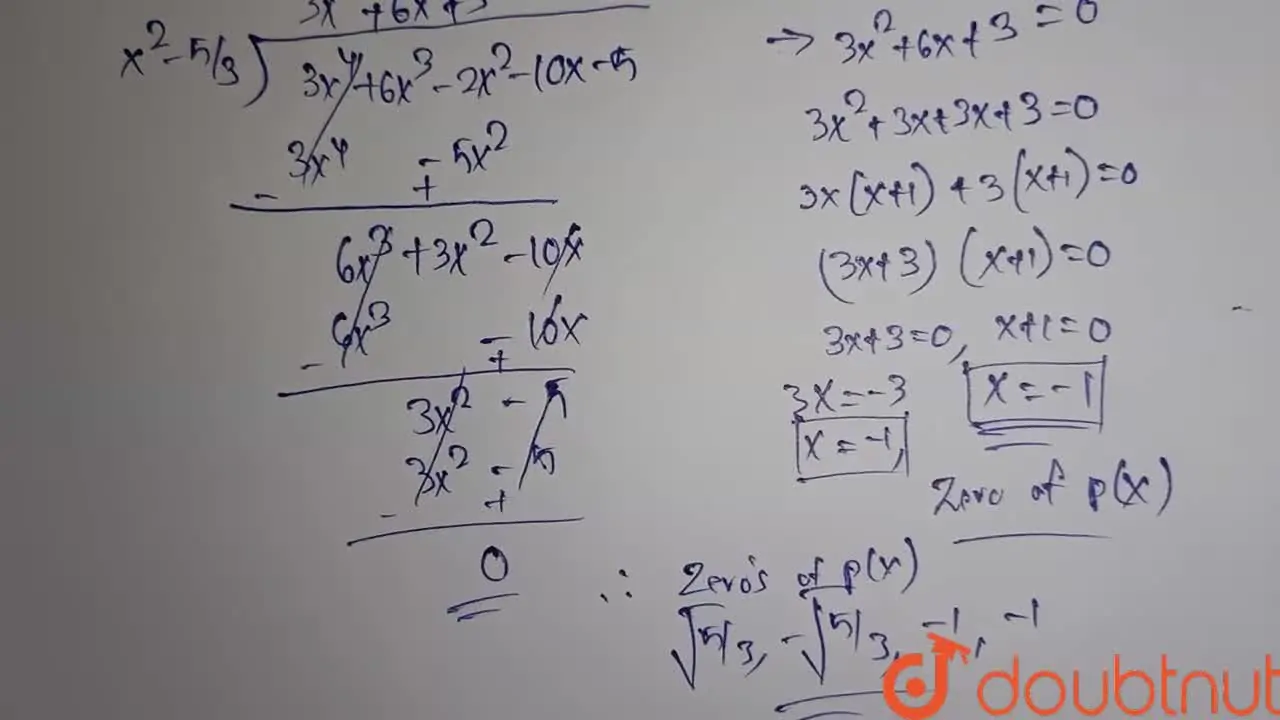 3x² + 6x + 3
x² - 5/3 ) 3x⁴ + 6x³ - 2x² - 10x - 5
3x⁴ - 5x²
- +
6x³ + 3x² - 10x
6x³ - 10x
- +
3x² - 5
3x² - 5
- +
0
→ 3x² + 6x + 3 = 0
3x² + 3x + 3x + 3 = 0
3x(x+1) + 3(x+1) = 0
(3x+3) (x+1) = 0
3x+3 = 0, x+1 = 0
3x = -3 x = -1
x = -1,
Zero of p(x)
∴ Zero's of p(x)
√5/3, -√5/3, -1, -1
doubtnut